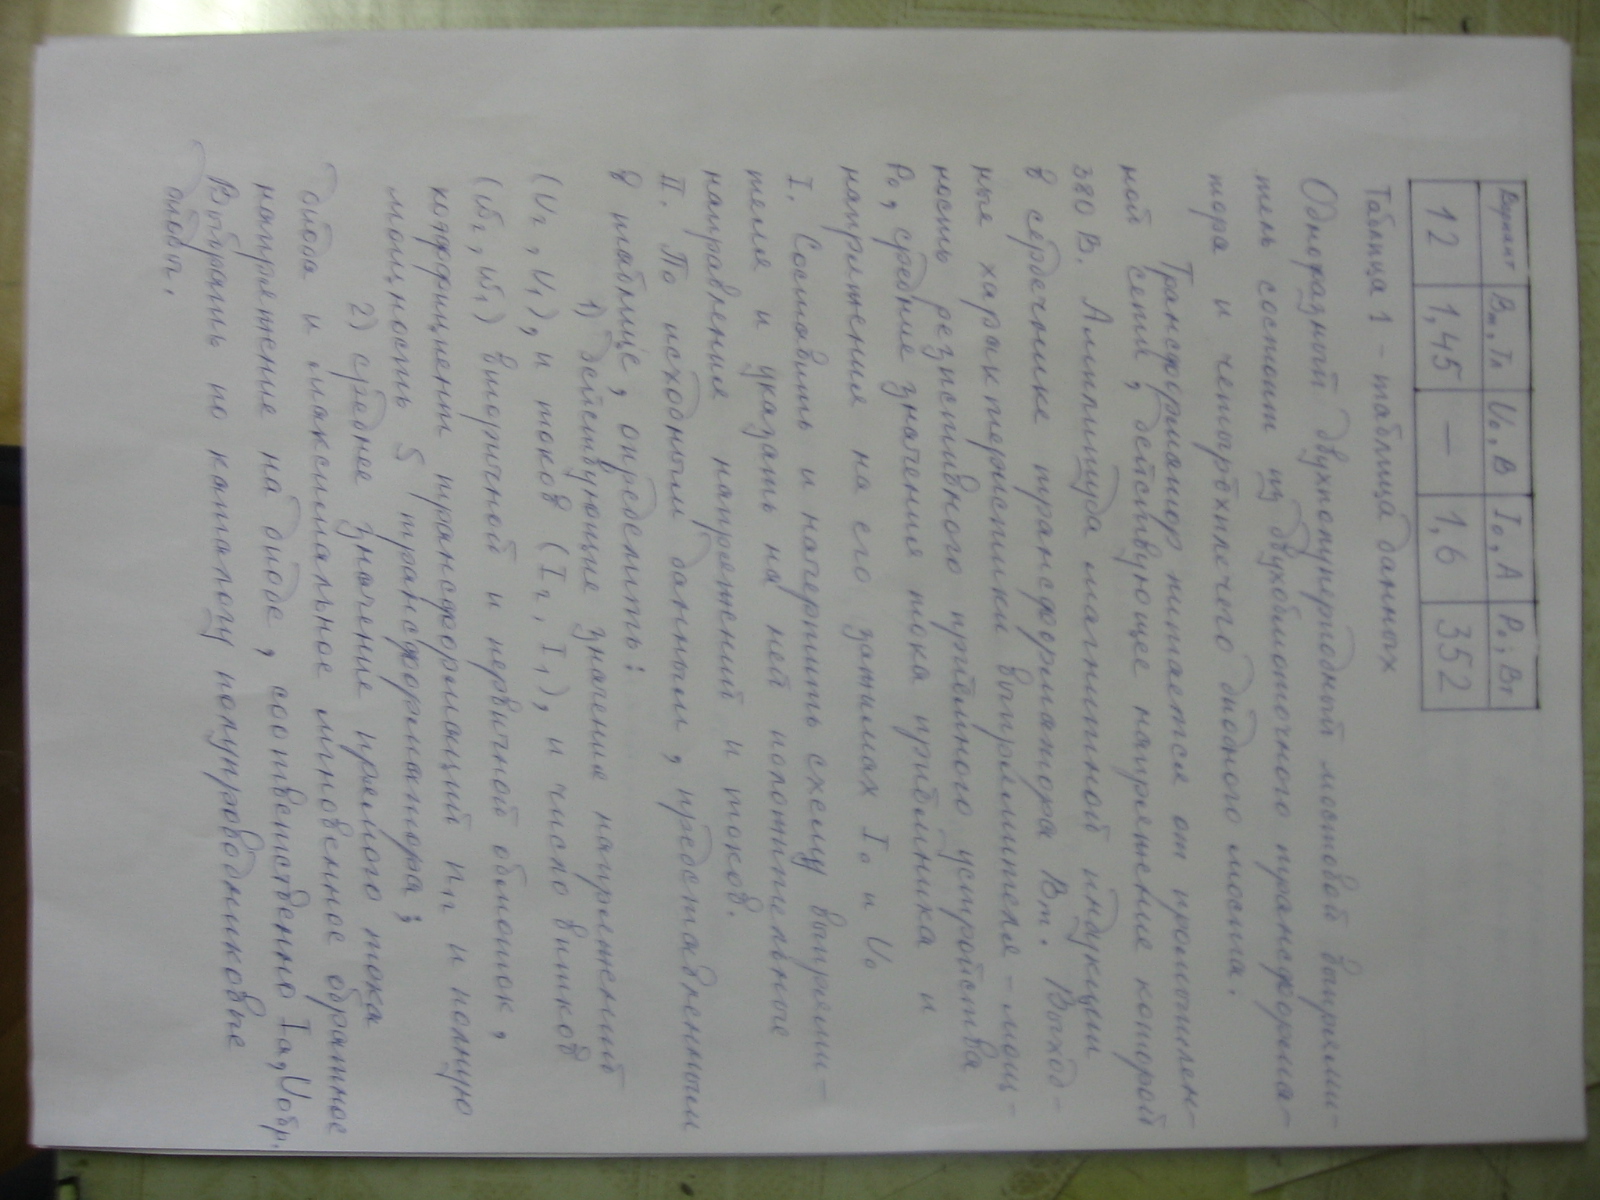 Вариант Bm, Тл U₀, В I₀, А P₀, Вт
12 1,45 — 1,6 352
Таблица 1 – таблица данных
Однофазный двухполупериодный мостовой выпрями-
тель состоит из двухобмоточного трансформа-
тора и четырёхплечего диодного моста.
Трансформатор питается от промышлен-
ной сети, действующее напряжение которой
380 В. Амплитуда магнитной индукции
в сердечнике трансформатора Bm. Выход-
ные характеристики выпрямителя – мощ-
ность резистивного приёмного устройства
P₀, средние значения тока приёмника и
напряжения на его зажимах I₀ и U₀
I. Составить и начертить схему выпрями-
теля и указать на ней положительные
направления напряжений и токов.
II. По исходным данным, представленным
в таблице, определить:
1) действующие значения напряжений
(U₂, U₁), и токов (I₂, I₁), и число витков
(ω₂, ω₁) вторичной и первичной обмоток,
коэффициент трансформаций nт и полную
мощность S трансформатора;
2) среднее значение прямого тока
диода и максимальное мгновенное обратное
напряжение на диоде, соответственно Iа, Uобр.
Выбрать по каталогу полупроводниковые
диоды.